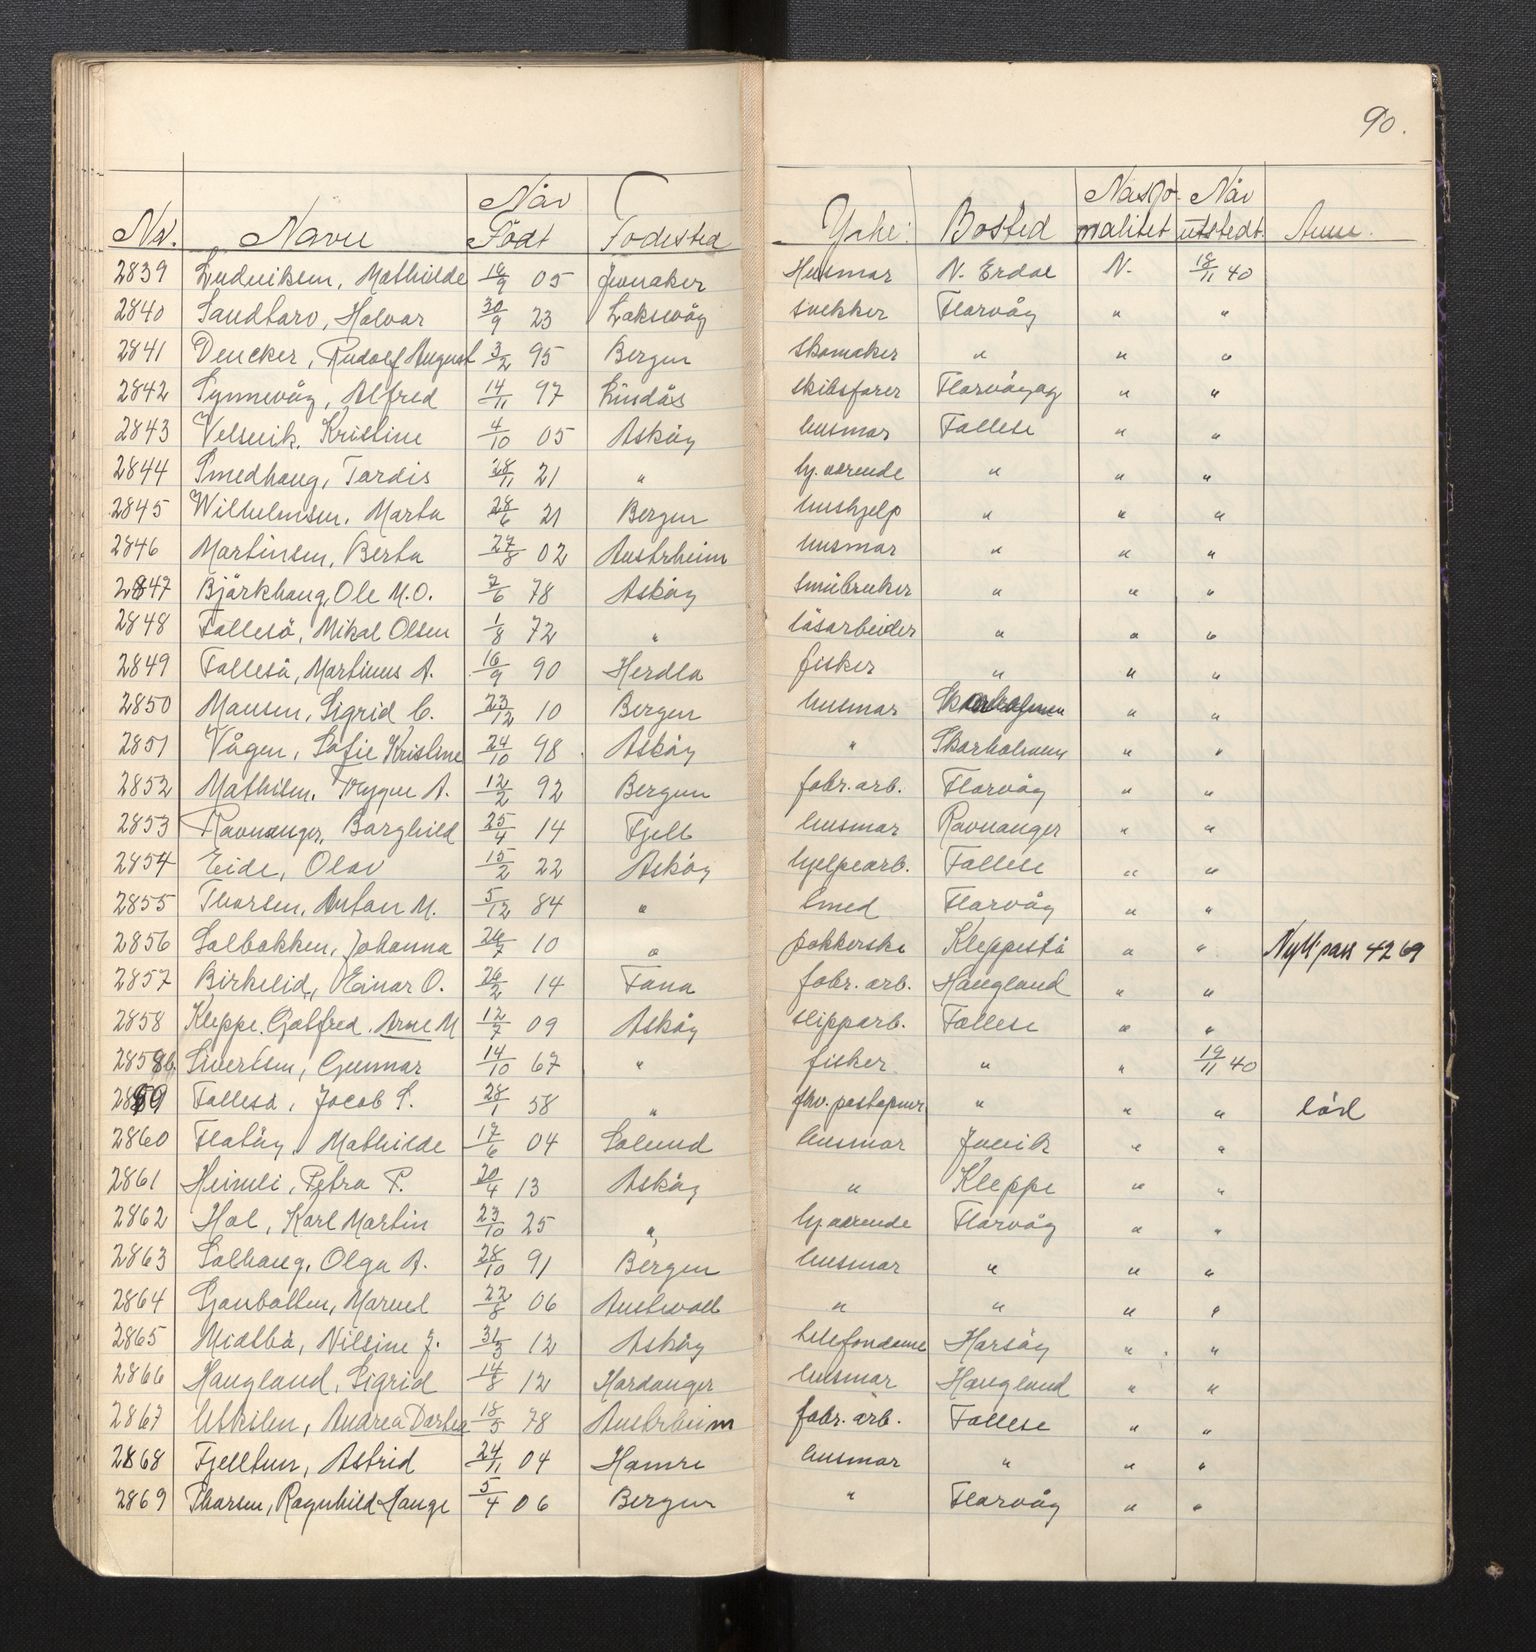 90.
Nr. Navn Når Født Fødested Yrke: Bosted Nasjonalitet Når utstedt. Anm.
2839 Ludviksen, Mathilde 18/9 05 Jevnaker Husmor N. Erdal N. 18/11 40
2840 Sandtorv, Halvar 30/9 23 Laksevåg snekker Florvåg " "
2841 Dencker, Rudolf August 3/2 95 Bergen skomaker " " "
2842 Synnevåg, Alfred 14/11 97 Lindås skibsfører Florvågøy " "
2843 Velsvik, Kristine 4/10 05 Askøy husmor Follese " "
2844 Smedhaug, Tordis 28/11 21 " hj. værende " " "
2845 Wilhelmsen, Marta 28/6 21 Bergen hushjelp " " "
2846 Martinsen, Berta 27/8 02 Austrheim husmor " " "
2847 Bjørkhaug, Ole M.O. 7/6 78 Askøy småbruker " " "
2848 Follesø, Mikal Olsen 1/8 72 " løsarbeider " " "
2849 Follesø, Martinus A. 16/9 90 Herdla fisker " " "
2850 Monsen, Sigrid C. 23/12 10 Bergen husmor " "
2851 Vågen, Sofie Kristine 24/10 98 Askøy " Skarholmen " "
2852 Mathisen, Trygve A. 12/2 92 Bergen fabr. arb. Florvåg " "
2853 Ravnanger, Borghild 25/4 14 Fjell husmor Ravnanger " "
2854 Eide, Olav 15/2 22 Askøy hjelpearb. Follese " "
2855 Thorsen, Anton M. 5/12 84 " smed Florvåg " "
2856 Solbakken, Johanna 26/7 10 " pakkerske Kleppestø " " Nytt pass 4269
2857 Birkelid, Einar O. 26/2 14 Fana fabr. arb. Haugland " "
2858 Kleppe, Gotfred Arne M 12/7 09 Askøy slipparb. Follese " "
2858b. Sivertsen, Gunnar 14/10 67 " fisker " " 19/11 40
2859 Follesø, Jacob S. 28/1 58 " frv. postopner " " " løsl
2860 Flatøy, Mathilde 17/6 04 Solund husmor Juvik " "
2861 Heimli, Petra P. 20/4 13 Askøy " Kleppe " "
2862 Hol, Karl Martin 23/10 25 " hj. værende Florvåg " "
2863 Solhaug, Olga A. 28/10 91 Bergen husmor " " "
2864 Gjoubotten, Marnel 22/8 06 Austevoll " " " "
2865 Midtbø, Nilsine J. 31/3 12 Askøy telefondame Horsøy " "
2866 Haugland, Sigrid 14/8 12 Hardanger husmor Haugland " "
2867 Utkilen, Andrea Dortea 18/5 78 Austrheim fabr. arb. Follese " "
2868 Fjelltun, Astrid 24/11 04 Hamre husmor " " "
2869 Thorsen, Ragnhild Hauge 5/4 06 Bergen " Florvåg " "